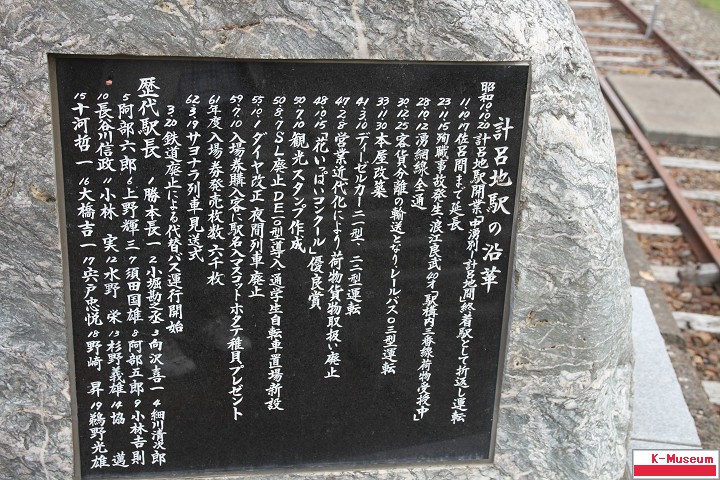 計呂地駅の沿革
昭和10.10.20 計呂地駅開業「中湧別↔計呂地間」終着駅として折返し運転
11.10.17 佐呂間まで延長
23.11.15 殉職事故発生 浪江良武 40才「駅構内三番線荷物受授中」
28.10.12 湧網線全通
30.12.25 客貨分離の輸送となりレールバス0三型運転
33.11.30 本屋改築
41.3.10 ディーゼルカー二一型、二二型運転
47.2.8 営業近代化により荷物貨物取扱い廃止
48.10.15 「花いっぱいコンクール」優良賞
50.7.10 観光スタンプ作成
50.8.7 SL廃止DE10型導入 通学生自転車置場新設
55.10.1 ダイヤ改正 夜間列車廃止
59.7.10 入場券購入客に駅名入マスコットホタテ稚貝プレゼント
61年度入場券発売枚数六十枚
62.3.19 サヨナラ列車見送式
3.20 鉄道廃止による代替バス運行開始
歴代駅長 1 勝本長一 2 小堀勘之丞 3 向沢喜一 4 細川清次郎
5 阿部六郎 6 上野輝三 7 須田国雄 8 阿部五郎 9 小林吉則
10 長谷川信政 11 小林 実 12 水野 栄 13 杉野義雄 14 協 邁
15 十河哲一 16 大橋吉一 17 宍戸忠悦 18 野崎 昇 19 鵜野光雄
K-Museum